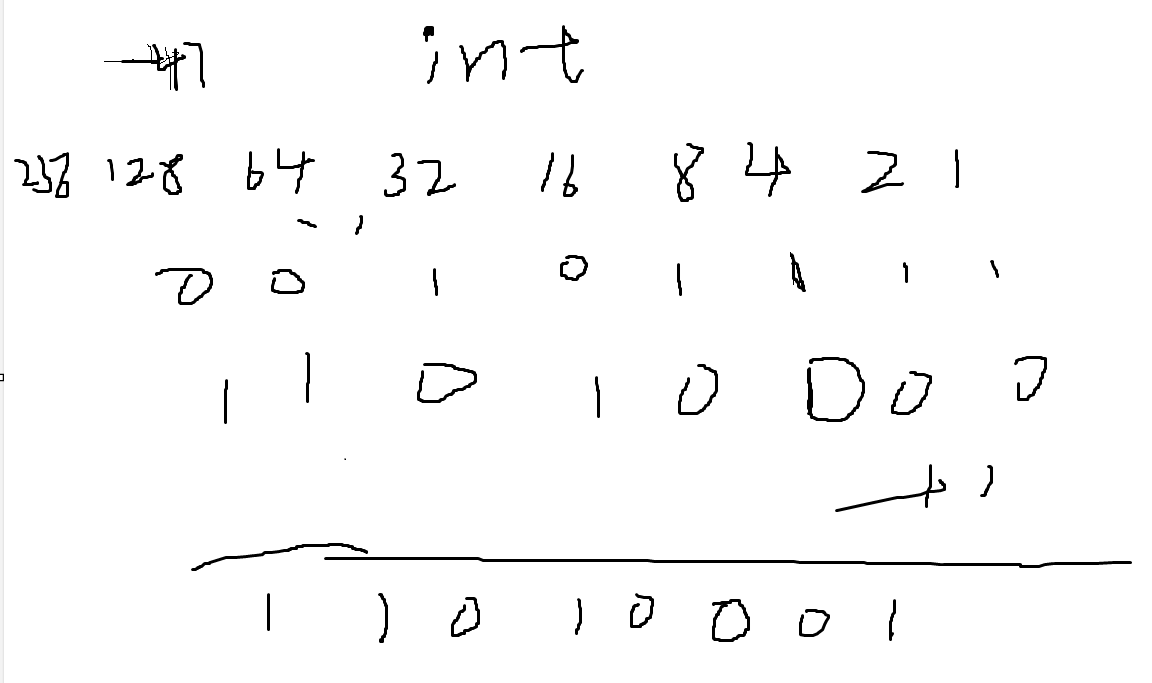 -47 int
256 128 64 32 16 8 4 2 1
0 0 1 0 1 1 1 1
1 1 0 1 0 0 0 0
+1
1 1 0 1 0 0 0 1